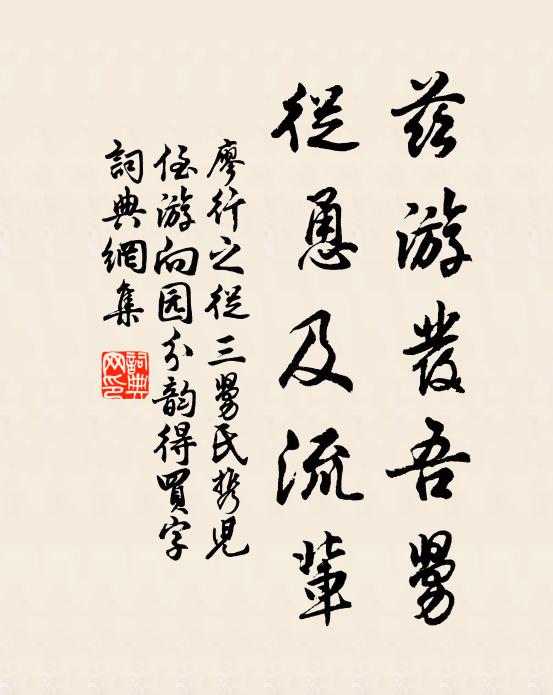 茲游發吾舅
從恿及流輩
廖行之從三舅氏携児
侄游向园分韵得買字
詞典網集
詞典网印